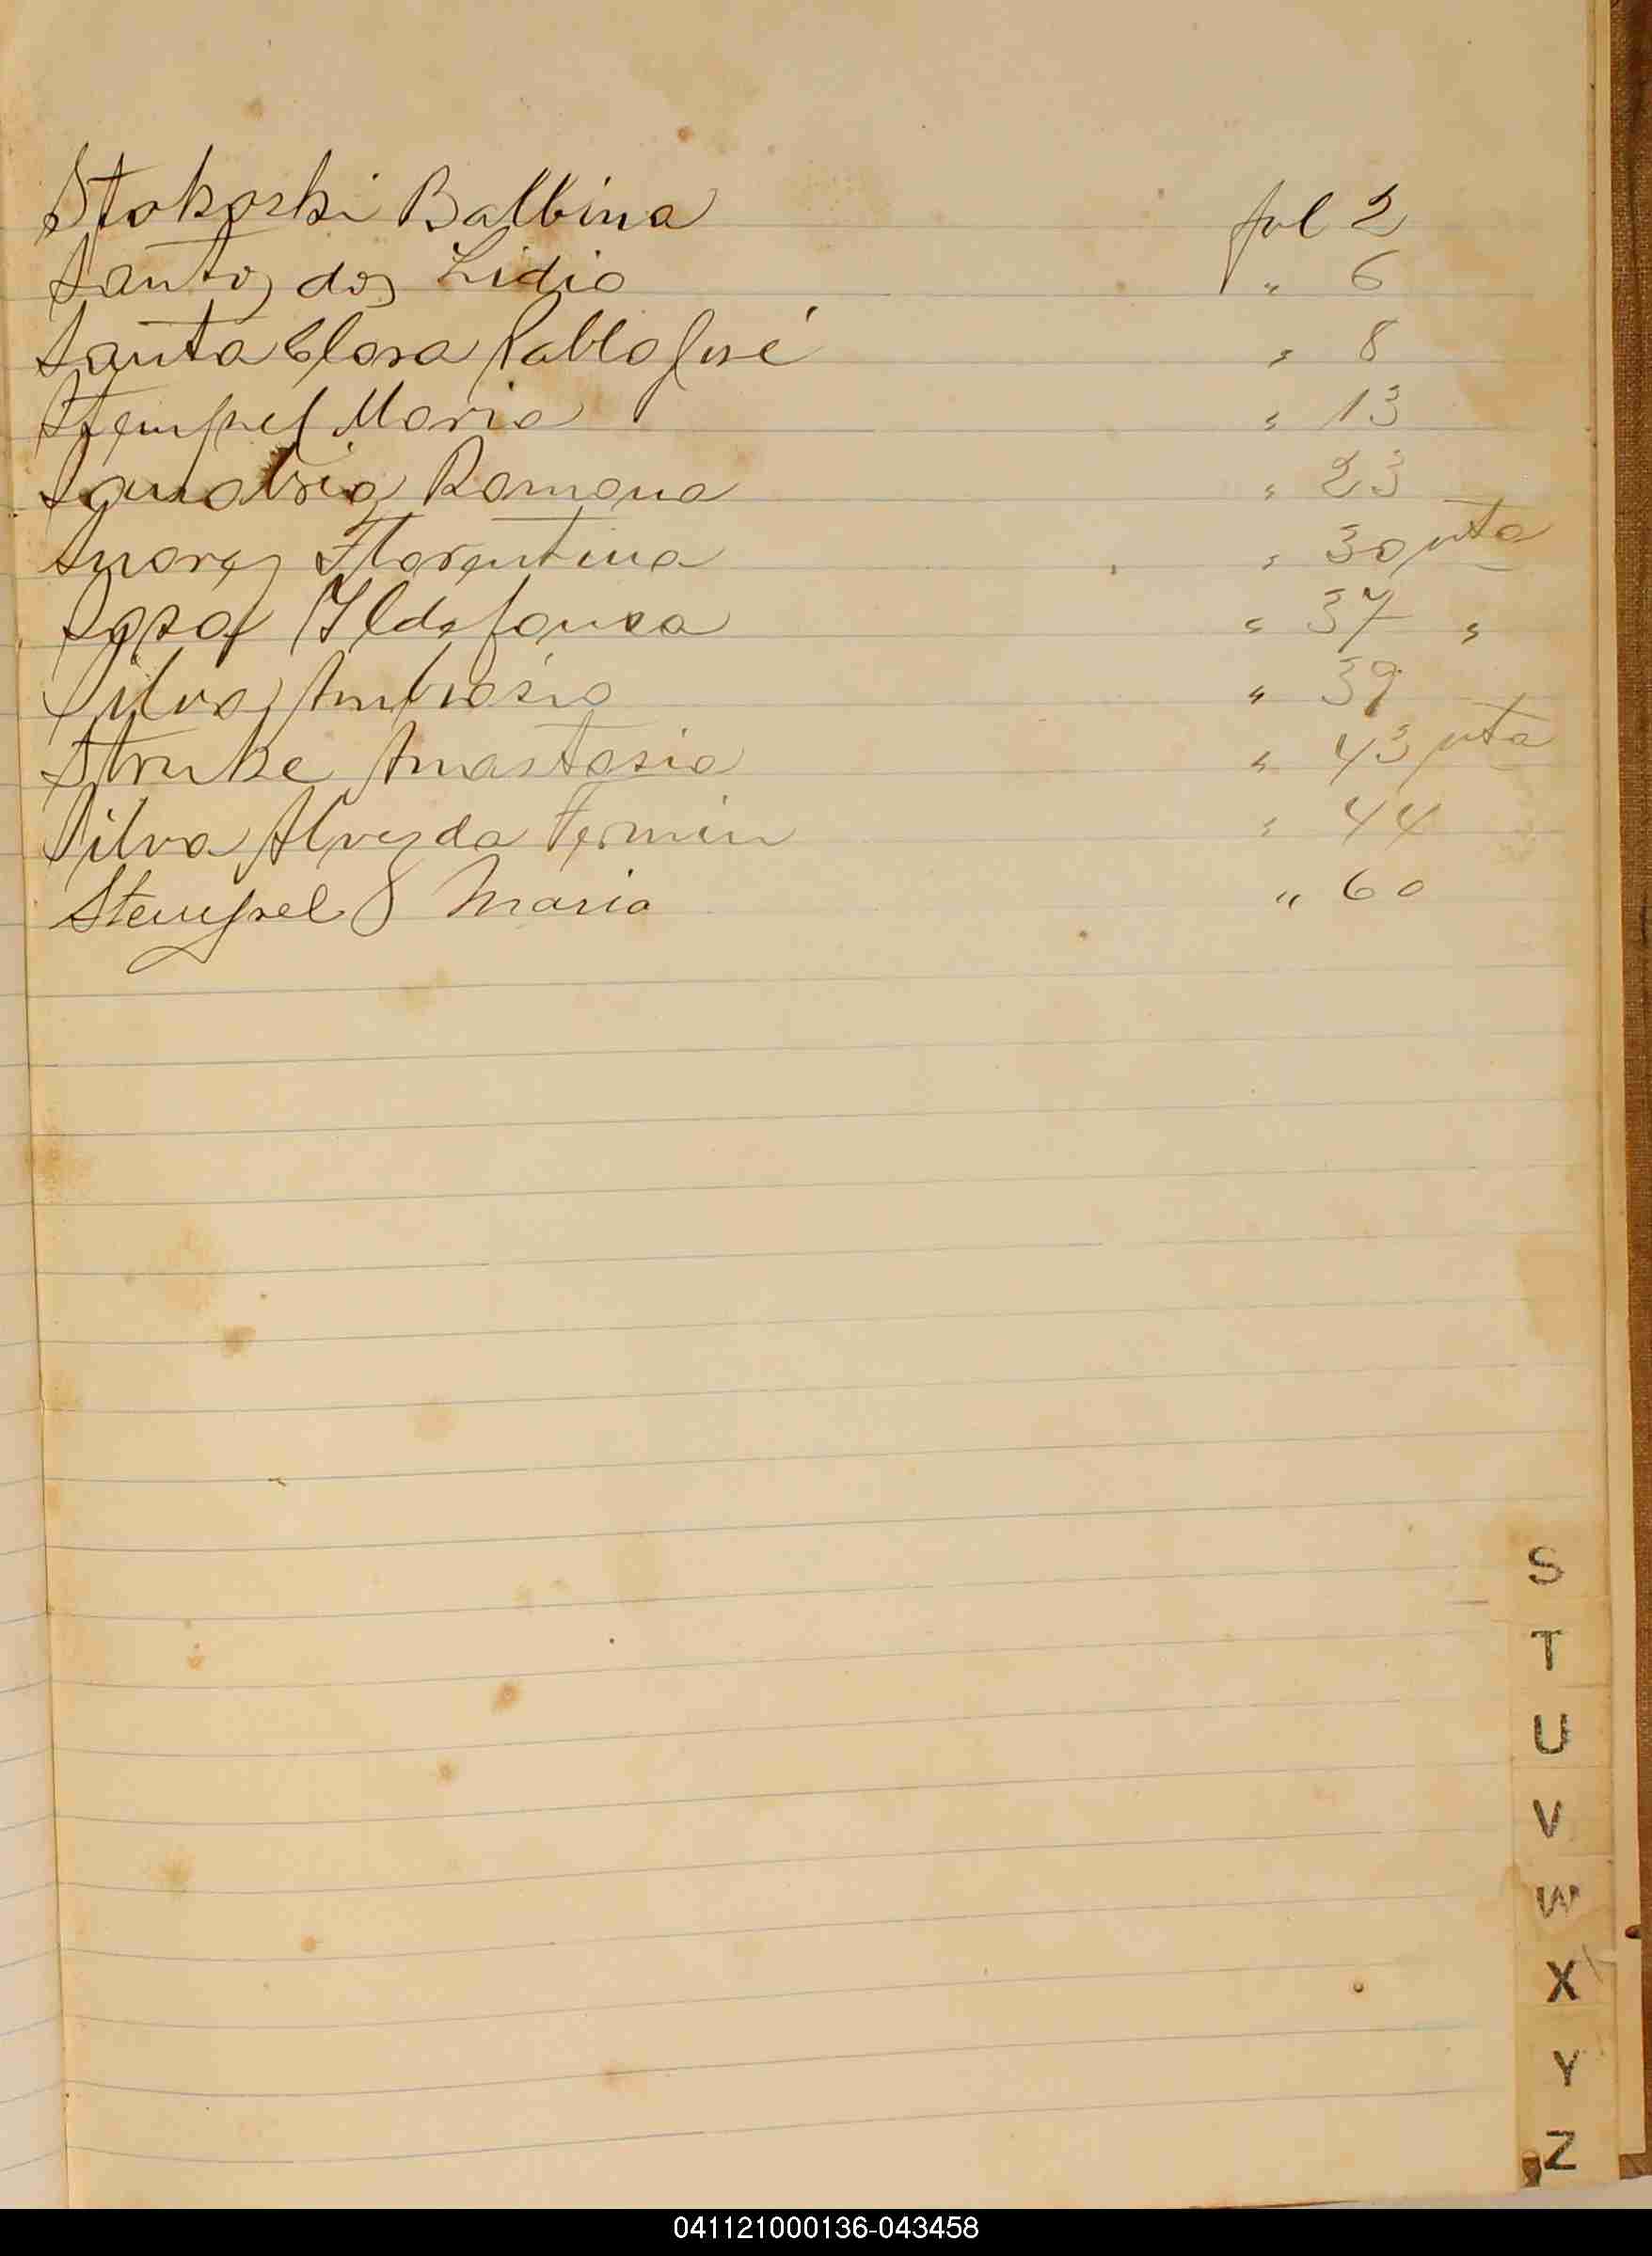 Stokoski Balbina fol 2
Santos dos Lidio " 6
Santa Clara Pablo José " 8
Stempel Maria " 13
Sanabria Romana " 23
Suarez Florentina " 30 vta
Sosa Ildefonsa " 37 "
Silva Ambrosio " 39
Struke Anastasia " 43 vta
Silva Alves da Fermin " 44
Stempel S Maria " 60
S
T
U
V
W
X
Y
Z
041121000136-043458